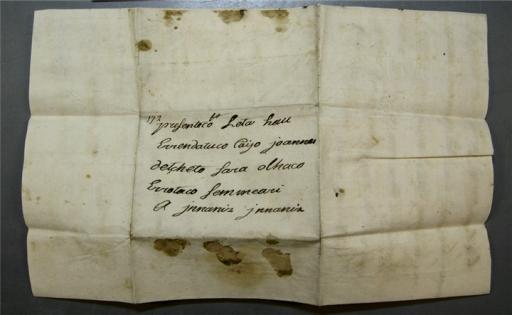 173
presentaco bt Leta hau
Errendatuco Caijo joannes
detcheto sara olhaco
Errotaco semmeari
A jnnaniz jnnaniz